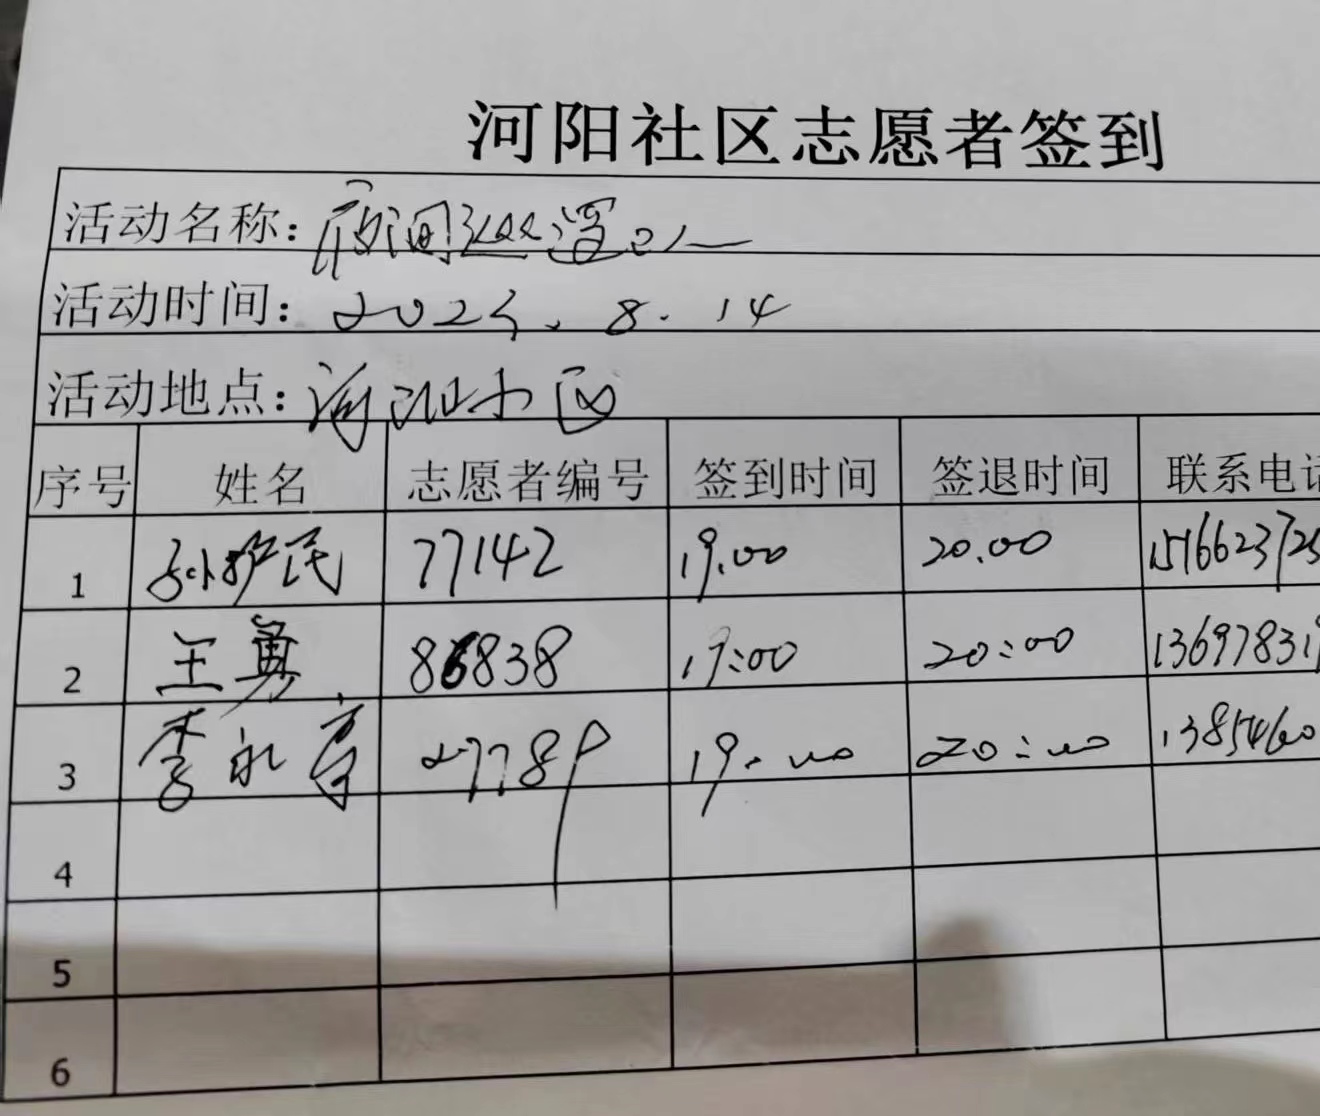 河阳社区志愿者签到
活动名称：夜间巡逻
活动时间：2025.8.14
活动地点：河阳小区
序号 姓名 志愿者编号 签到时间 签退时间 联系电话
1 孙护民 77142 19.00 20.00 151662372
2 王勇 86838 19:00 20:00 13697831
3 李永 27789 19:00 20:00 1385460
4
5
6